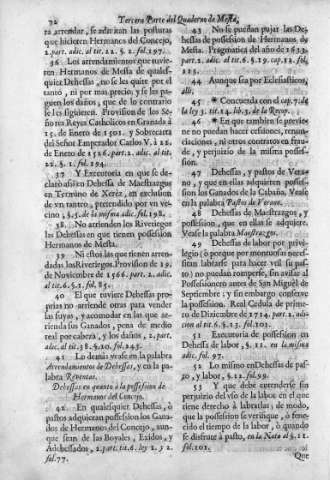 72 Tercera Parte del Quaderno de Mesta,
ra arrendar, se admitan las posturas
que hicieren Hermanos del Concejo,
2. part. adic. al tit. 22. §. 2. fol. 297.
36 Los arrendamientos que tuvieren
Hermanos de Mesta de qualesquier
Dehessas, no se les quite por el
tanto, ni por mas precio, y se les paguen
los daños, que de lo contrario
se les siguieren. Provision de los Señores
Reyes Catholicos en Granada à
15. de Enero de 1501. y Sobrecarta
del Señor Emperador Carlos V. à 22.
de Enero de 1526. part. 2. adic. al tit.
22. §. 2. fol. 294.
37 Y Executoria en que se declarò
assi en Dehessa de Maestrazgo
en Termino de Xeréz, en exclusion
de un tanto, pretendido por un vecino,
§. 5. de la misma adic. fol. 198.
38 No atienden los Riveriegos
las Dehessas en que tienen possession
Hermanos de Mesta.
39 Ni estos las que tienen arrendadas
los Riveriegos. Provision de 29.
de Noviembre de 1566. part. 2. adic.
al tit. 6. §. 1. fol. 85.
40 El que tuviere Dehessas proprias
no arriende otras para vender
las suyas, y acomodar en las que arrienda
sus Ganados, pena de medio
real por cabeza, y los daños, 2. part.
adic. al tit. 38. §. 20. fol. 245.
41 Lo demás vease en la palabra
Arrendamientos de Dehessas, y en la palabra
Reventas.
Dehessas en quanto à la possession de
Hermanos del Concejo.
42 En qualesquier Dehessas, ò
pastos adquieran possession los Ganados
de Hermanos del Concejo, aunque
sean de las Boyales, Exidos, y
Adehessados, 2. part. tit. 6. ley 2. y
fol. 77.
43 No se pueden pujar las Dehessas
de possession de Hermanos de
Mesta. Pragmatica del año de 1633.
part. 2. adic. al tit. 6. §. 19. cap. 12. fol.
125.
44 Aunque sea por Eclesiasticos,
alli.
45 * Concuerda con el cap. 7. de
la ley 3. tit. 14. lib. 3. de la Recop.
46 * En que tambien se previene
no puedan hacer cessiones, renunciaciones,
ni otros contratos en fraude,
y perjuicio de la misma possession.
47 Dehessas, y pastos de Verano,
y que en ellas adquieren possession
los Ganados de la Cabaña. Vease
en la palabra Pastos de Verano.
48 Dehessas de Maestrazgos, y
possession, que en ellas se adquiere.
Vease la palabra Maestrazgos.
49 Dehessas de labor por privilegio
(ò porque por montuosas necessitan
labrarse para hacer util su pasto)
no puedan romperse, sin avisar al
Possessionero antes de San Miguel de
Septiembre; y sin embargo conserve
la possession. Real Cedula de primero
de Diciembre de 1714. part. 2. adicion
al tit. 6. §. 13. fol. 103.
51 Executoria de possession en
Dehessa de labor, §. 11. en la misma
adic. fol. 97.
52 Lo mismo en Dehessas de pasto,
y labor, §. 12. fol. 99.
53 Y que debe entenderse sin
perjuicio del uso de la labor en el que
tiene derecho à labrarlas; de modo,
que la possession se verifique, ò fenecido
el tiempo de la labor, ò quando
se disfrute à pasto, en la Nota al §. 12.
fol. 102.
Que